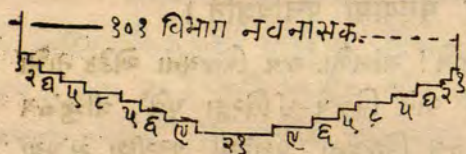 १०१ विभाग नवनासक.
१ २ ४ ५ ८ ५ ६ ९ २१ ९ ६ ५ ८ ५ ४ २ १